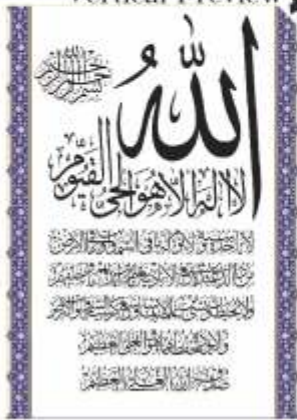 Vertical Preview
بسم الله الرحمن الرحيم
الله
لا اله الا هو الحي القيوم
لا تأخذه سنة ولا نوم له ما في السموات وما في الارض
من ذا الذي يشفع عنده الا باذنه يعلم ما بين ايديهم وما خلفهم
ولا يحيطون بشيء من علمه الا بما شاء وسع كرسيه السموات والارض
ولا يؤده حفظهما وهو العلي العظيم
صدق الله العلي العظيم